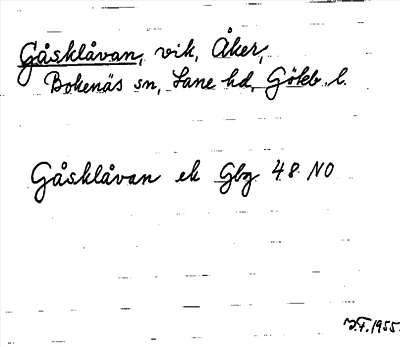 Gåsklåvan, vik, Åker,
Bokenäs sn, Lane hd, Gökb. l.
Gåsklåvan ek Gbg 48 NO
J.F. 1955